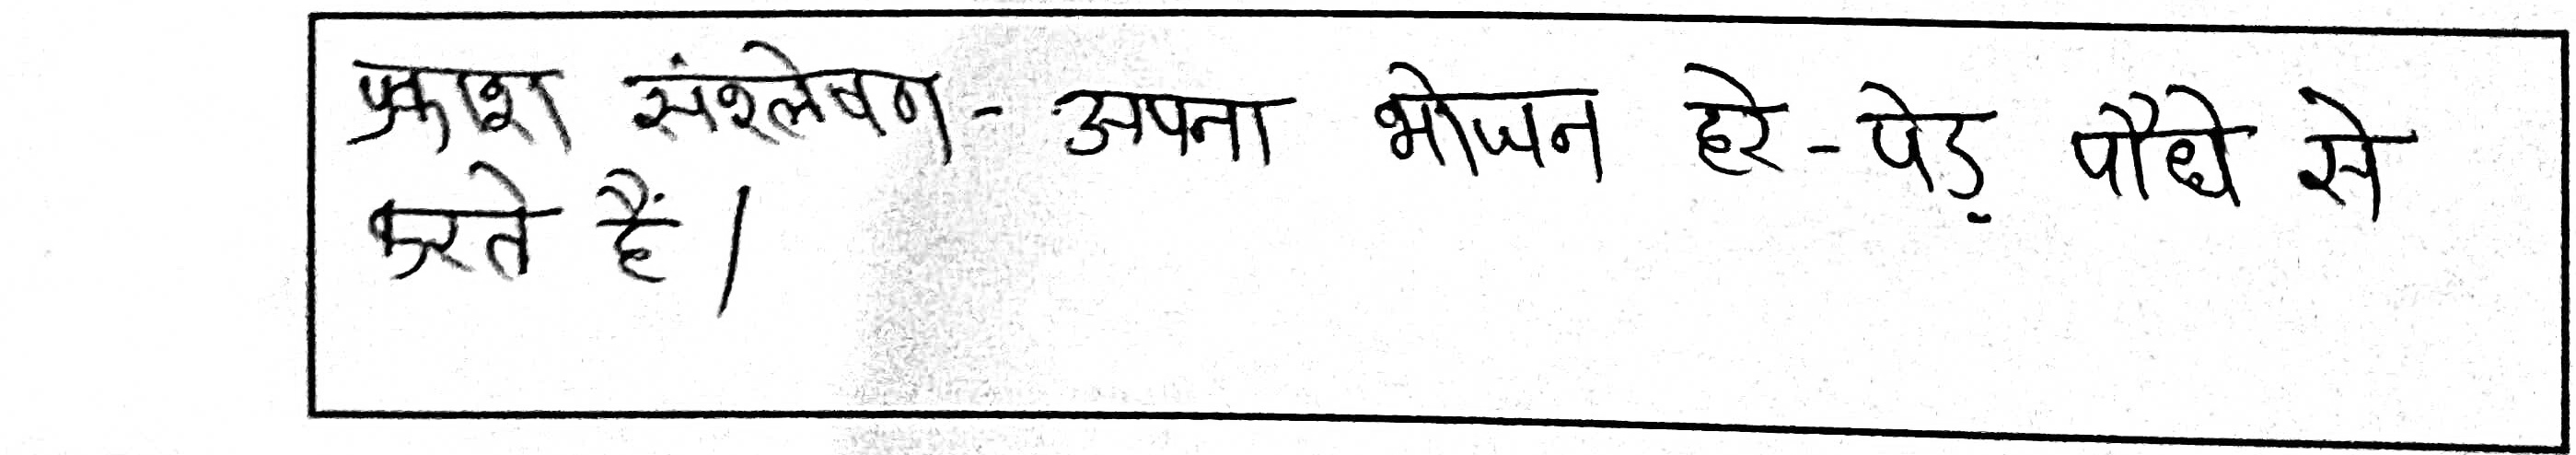 प्रकाश संश्लेषण - अपना भोजन हरे - पेड़ पौधे से
करते हैं।